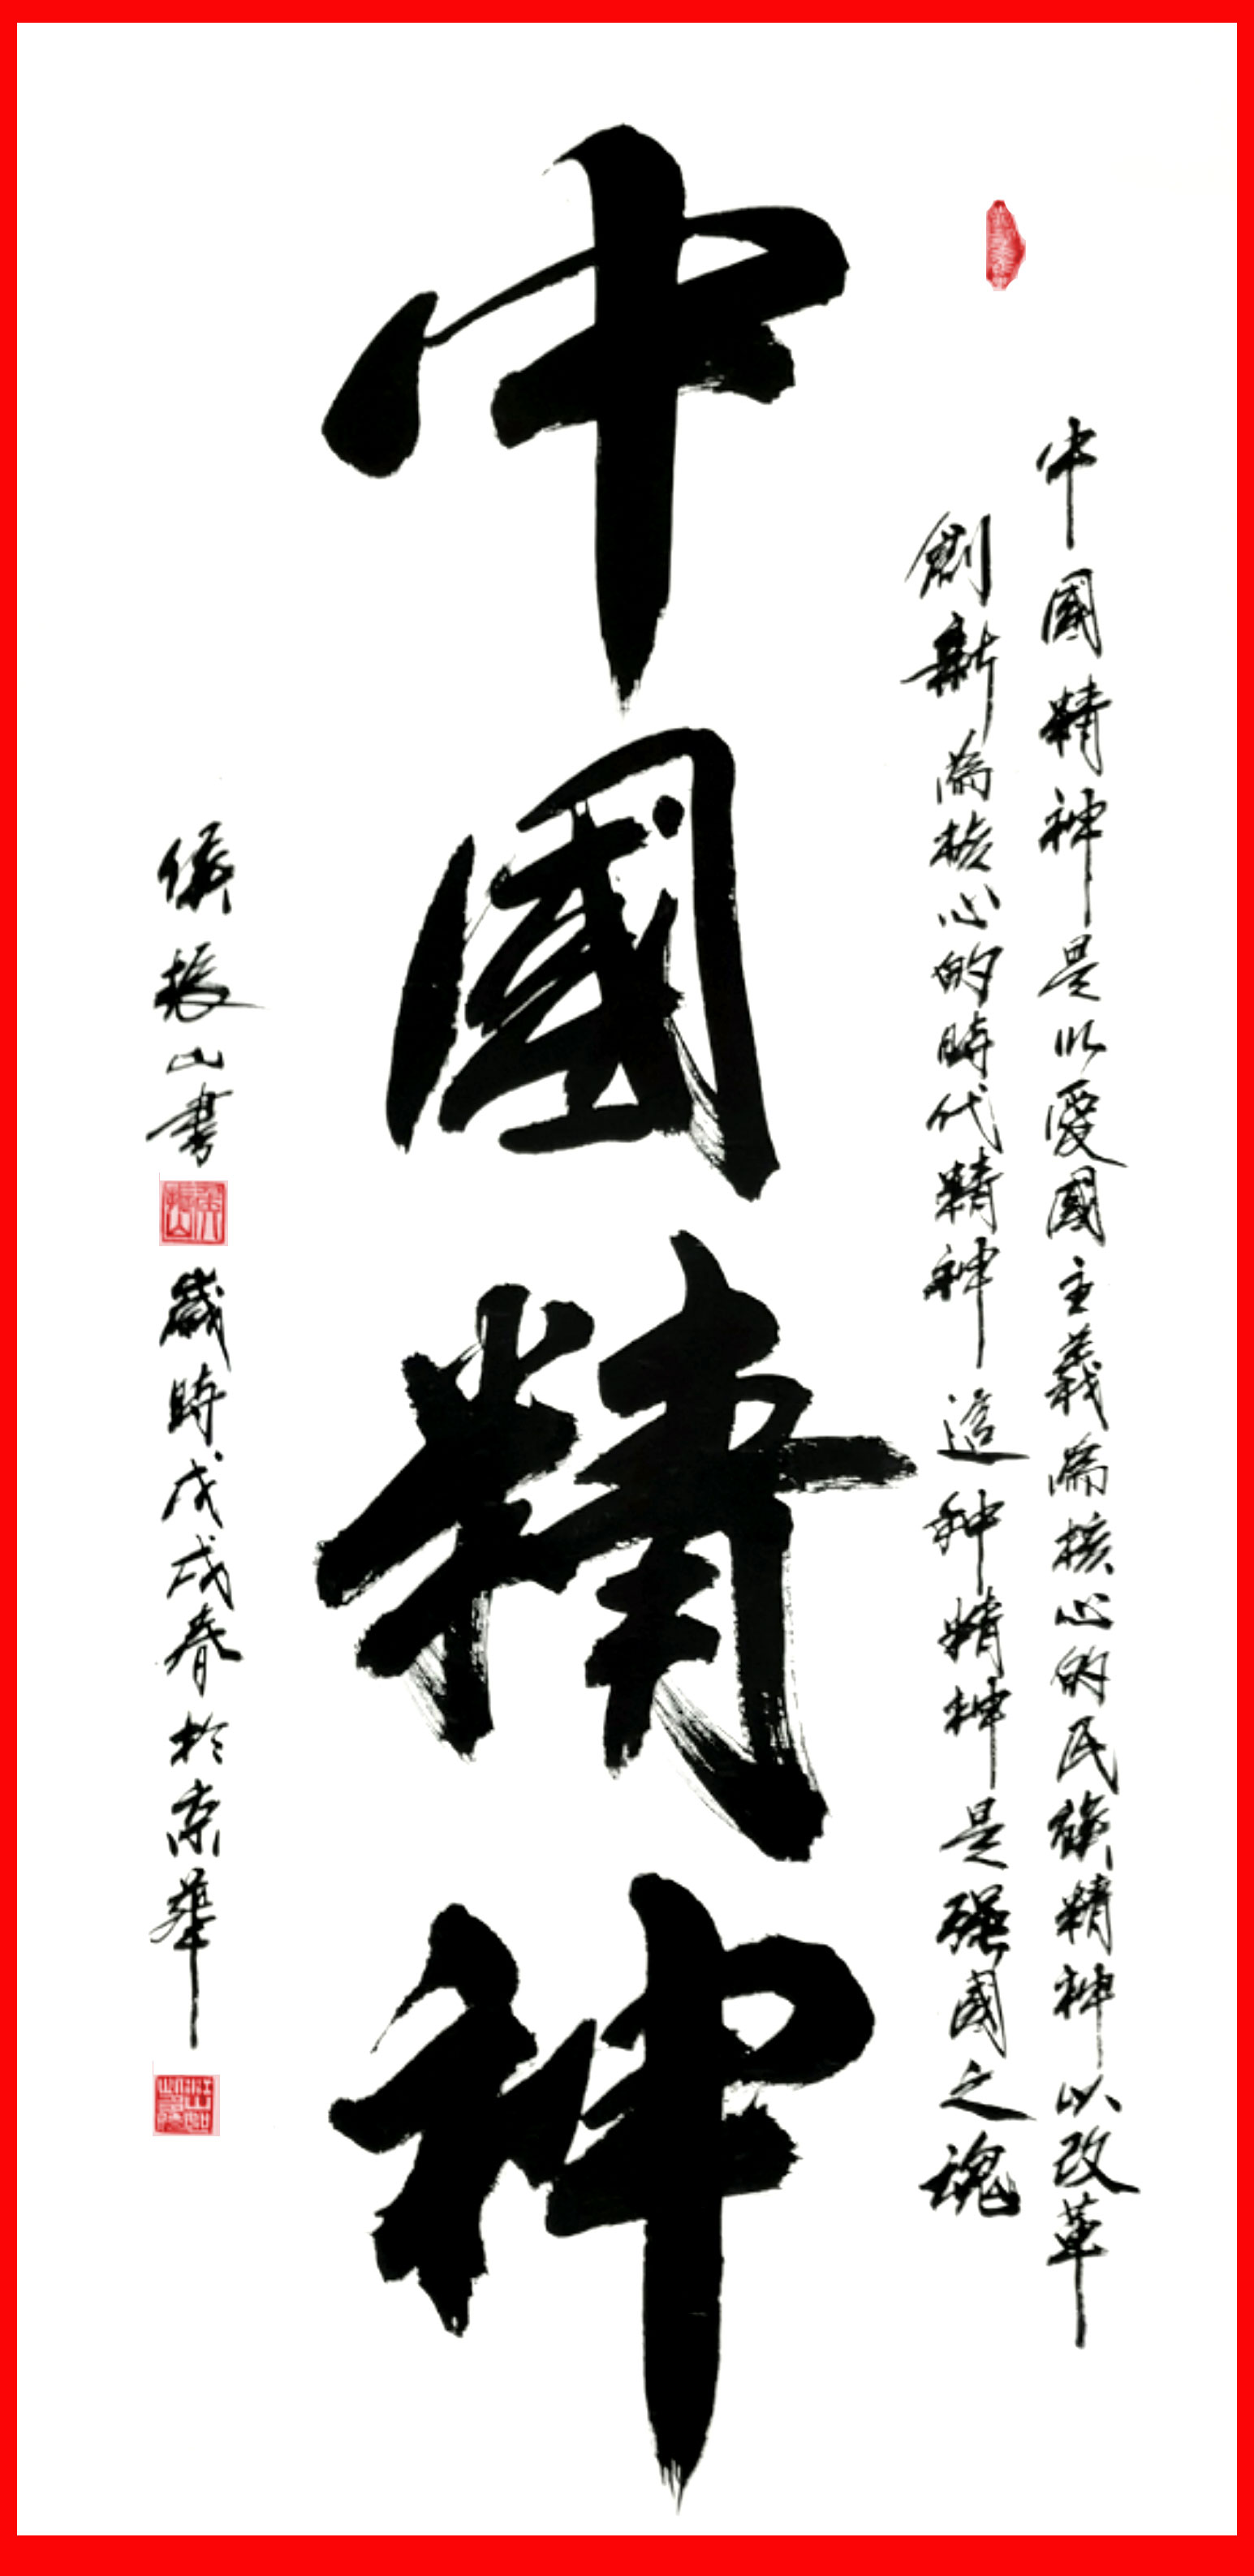 中國精神是以愛國主義為核心的民族精神以改革
創新為核心的時代精神這种精神是强國之魂
中國精神
侯振山書 歲時戊戌春於京華